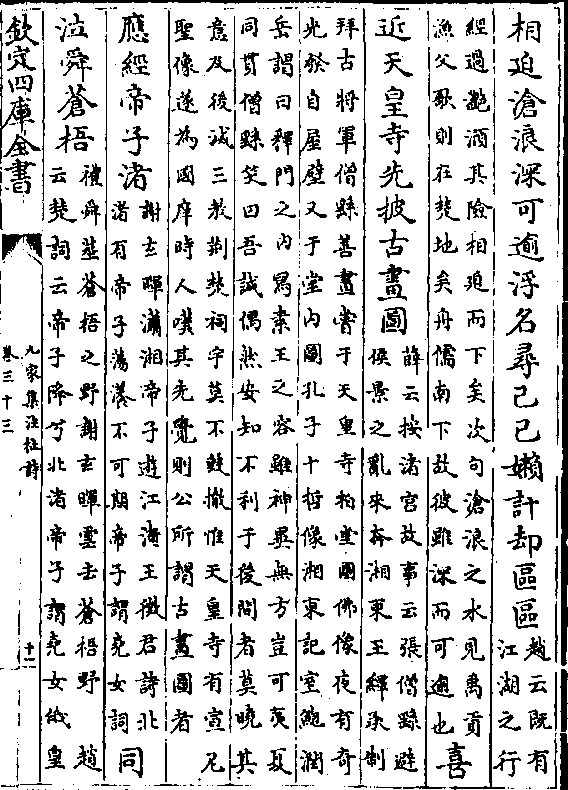 相迫滄浪深可逾浮名尋已已嬾計却區區趙云既有江湖之行
經過灔澦其險相迫而下矣次句滄浪之水見禹貢
漁父歌則在楚地矣舟儒南下故彼雖深而可逾也喜
近天皇寺先披古畫圖薛云按渚宫故事云張僧繇避侯景之亂來奔湘東王繹承制
拜右將軍僧繇善畫嘗于天皇寺栢堂圖佛像夜有奇
光發自屋壁又于堂内圖孔子十哲像湘東記室鮑潤
岳謂曰釋門之内寫素王之容雖神異無方豈可夷夏
同貫僧繇笑曰吾誠偶然安知不利于後聞者莫曉其
意及後滅三教荆楚祠宇莫不毁撤惟天皇寺有宣尼
聖像遂為國庠時人嘆其先覺則公所謂古畫圖者
應經帝子渚謝玄暉瀟湘帝子遊江淹王徴君詩北渚有帝子蕩瀁不可期帝子謂堯女詞同
泣舜蒼梧禮舜塟蒼梧之野謝玄暉雲去蒼梧野趙云楚詞云帝子降兮北渚帝子謂堯女娥皇
欽定四庫全書
九家集注杜詩
卷三十三
十一